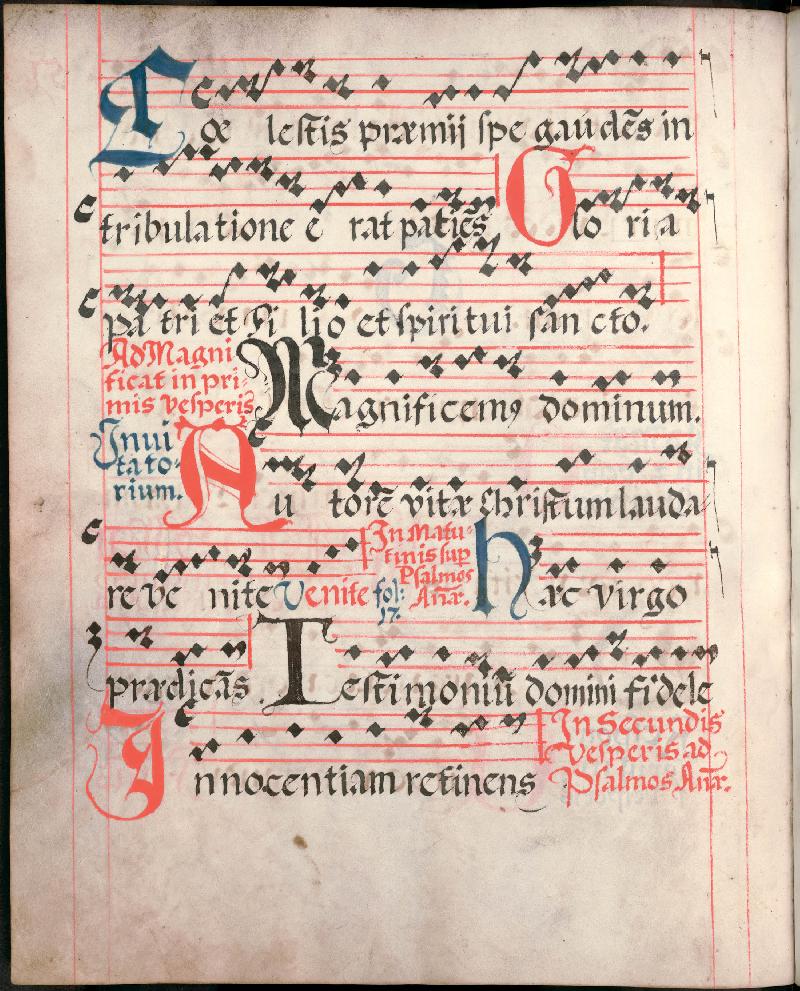 Cœ lestis præmij spe gaudēs in
tribulatione e rat patiēs Glo ria
pa tri et Fi lio et spiritui san cto.
Ad Magni
ficat in pri-
mis vesperis
Magnificemꝰ dominum.
Inui
tato-
rium.
Au torē vitæ Christum lauda
re ve nite Venite fol:
17.
In Matu-
tinis sup
Psalmos
Añæ.
hæc virgo
prædicās. Testimoniū domini fidele
Innocentiam retinens
In Secundis
Vesperis ad
Psalmos Añæ.